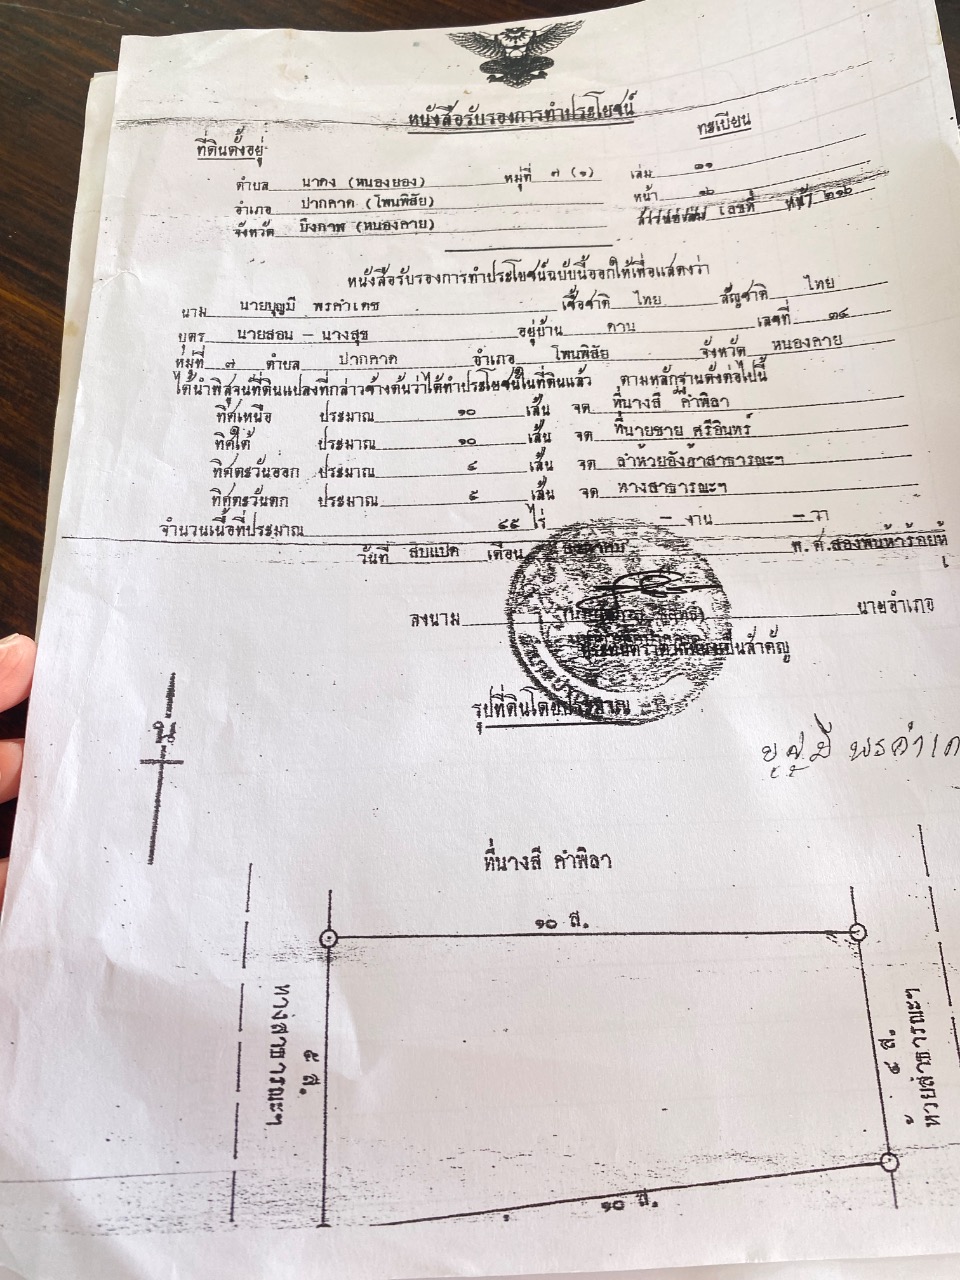 หนังสือรับรองการทำประโยชน์
ทะเบียน
ที่ดินตั้งอยู่
ตำบล นาคง (หนองยอง) หมู่ที่ ๗ (๑) เล่ม ๓๑
อำเภอ ปากคาด (โพนพิสัย) หน้า ๑๖
จังหวัด บึงกาฬ (หนองคาย) เลขที่ หน้า ๒๑๖
หนังสือรับรองการทำประโยชน์ฉบับนี้ออกให้เพื่อแสดงว่า
นาม นายบุญมี พรคำเดช เชื้อชาติ ไทย สัญชาติ ไทย
บุตร นายสอน - นางสุข อยู่บ้าน ดาน เลขที่ ๓๔
หมู่ที่ ๗ ตำบล ปากคาด อำเภอ โพนพิสัย จังหวัด หนองคาย
ได้นำพิสูจน์ที่ดินแปลงที่กล่าวข้างต้นว่าได้ทำประโยชน์ในที่ดินแล้ว ตามหลักฐานดังต่อไปนี้
ทิศเหนือ ประมาณ ๑๐ เส้น จด ที่นางสี คำพิลา
ทิศใต้ ประมาณ ๑๐ เส้น จด ที่นายชาย ศรีอินทร์
ทิศตะวันออก ประมาณ ๔ เส้น จด ลำห้วยอังฮ้าสาธารณะฯ
ทิศตะวันตก ประมาณ ๕ เส้น จด ทางสาธารณะฯ
จำนวนเนื้อที่ประมาณ ๔๕ ไร่ - งาน - วา
วันที่ สิบแปด เดือน พ.ศ. สองพันห้าร้อยห้
ลงนาม นายอำเภอ
เป็นสำคัญ
รูปที่ดินโดยประมาณ
บุญมี พรคำเด
ที่นางสี คำพิลา
๑๐ ส.
ทางสาธารณะฯ
๕ ส.
๔ ส.
ห้วยสาธารณะฯ
๑๐ ส.